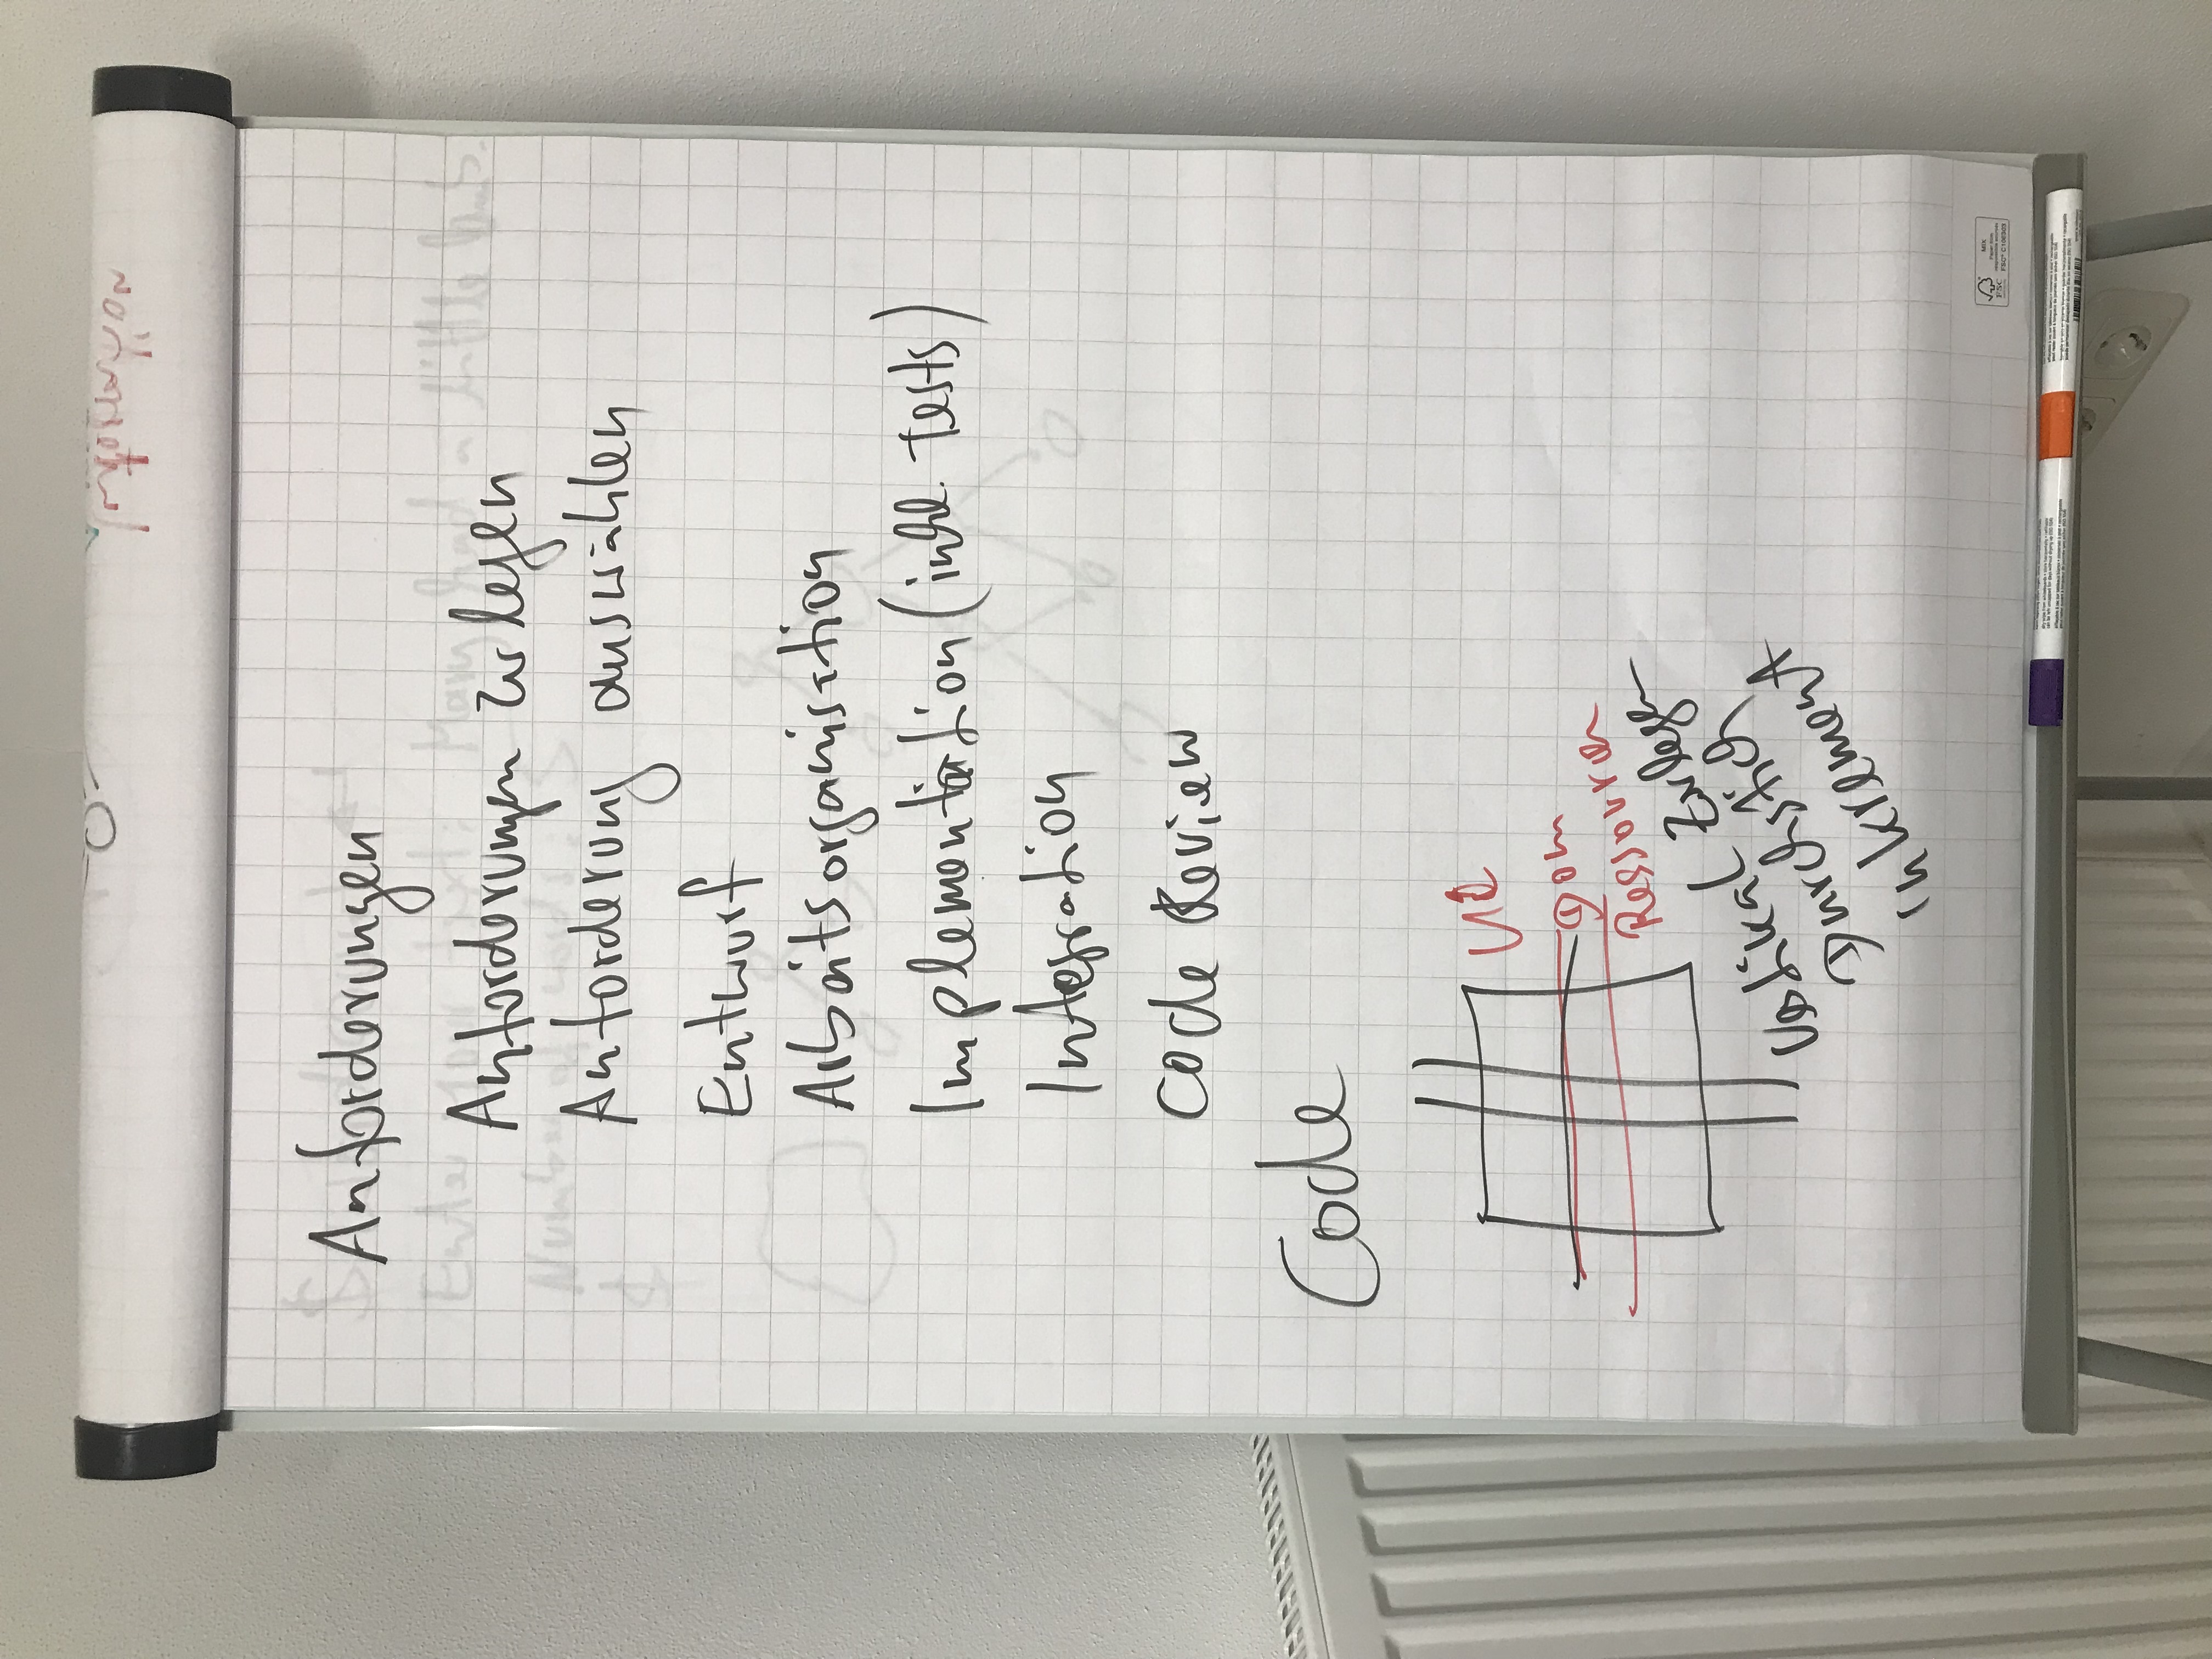 Anforderungen
Anforderungen zerlegen
Anforderung auswählen
Entwurf
Arbeitsorganisation
Implementation (inkl. Tests)
Integration
Code Review
Code
UI
Dom
Ressourcen
Vertikal Zerlegen
Durchstich
Inkrement
FSC
MIX
FSC® C106303